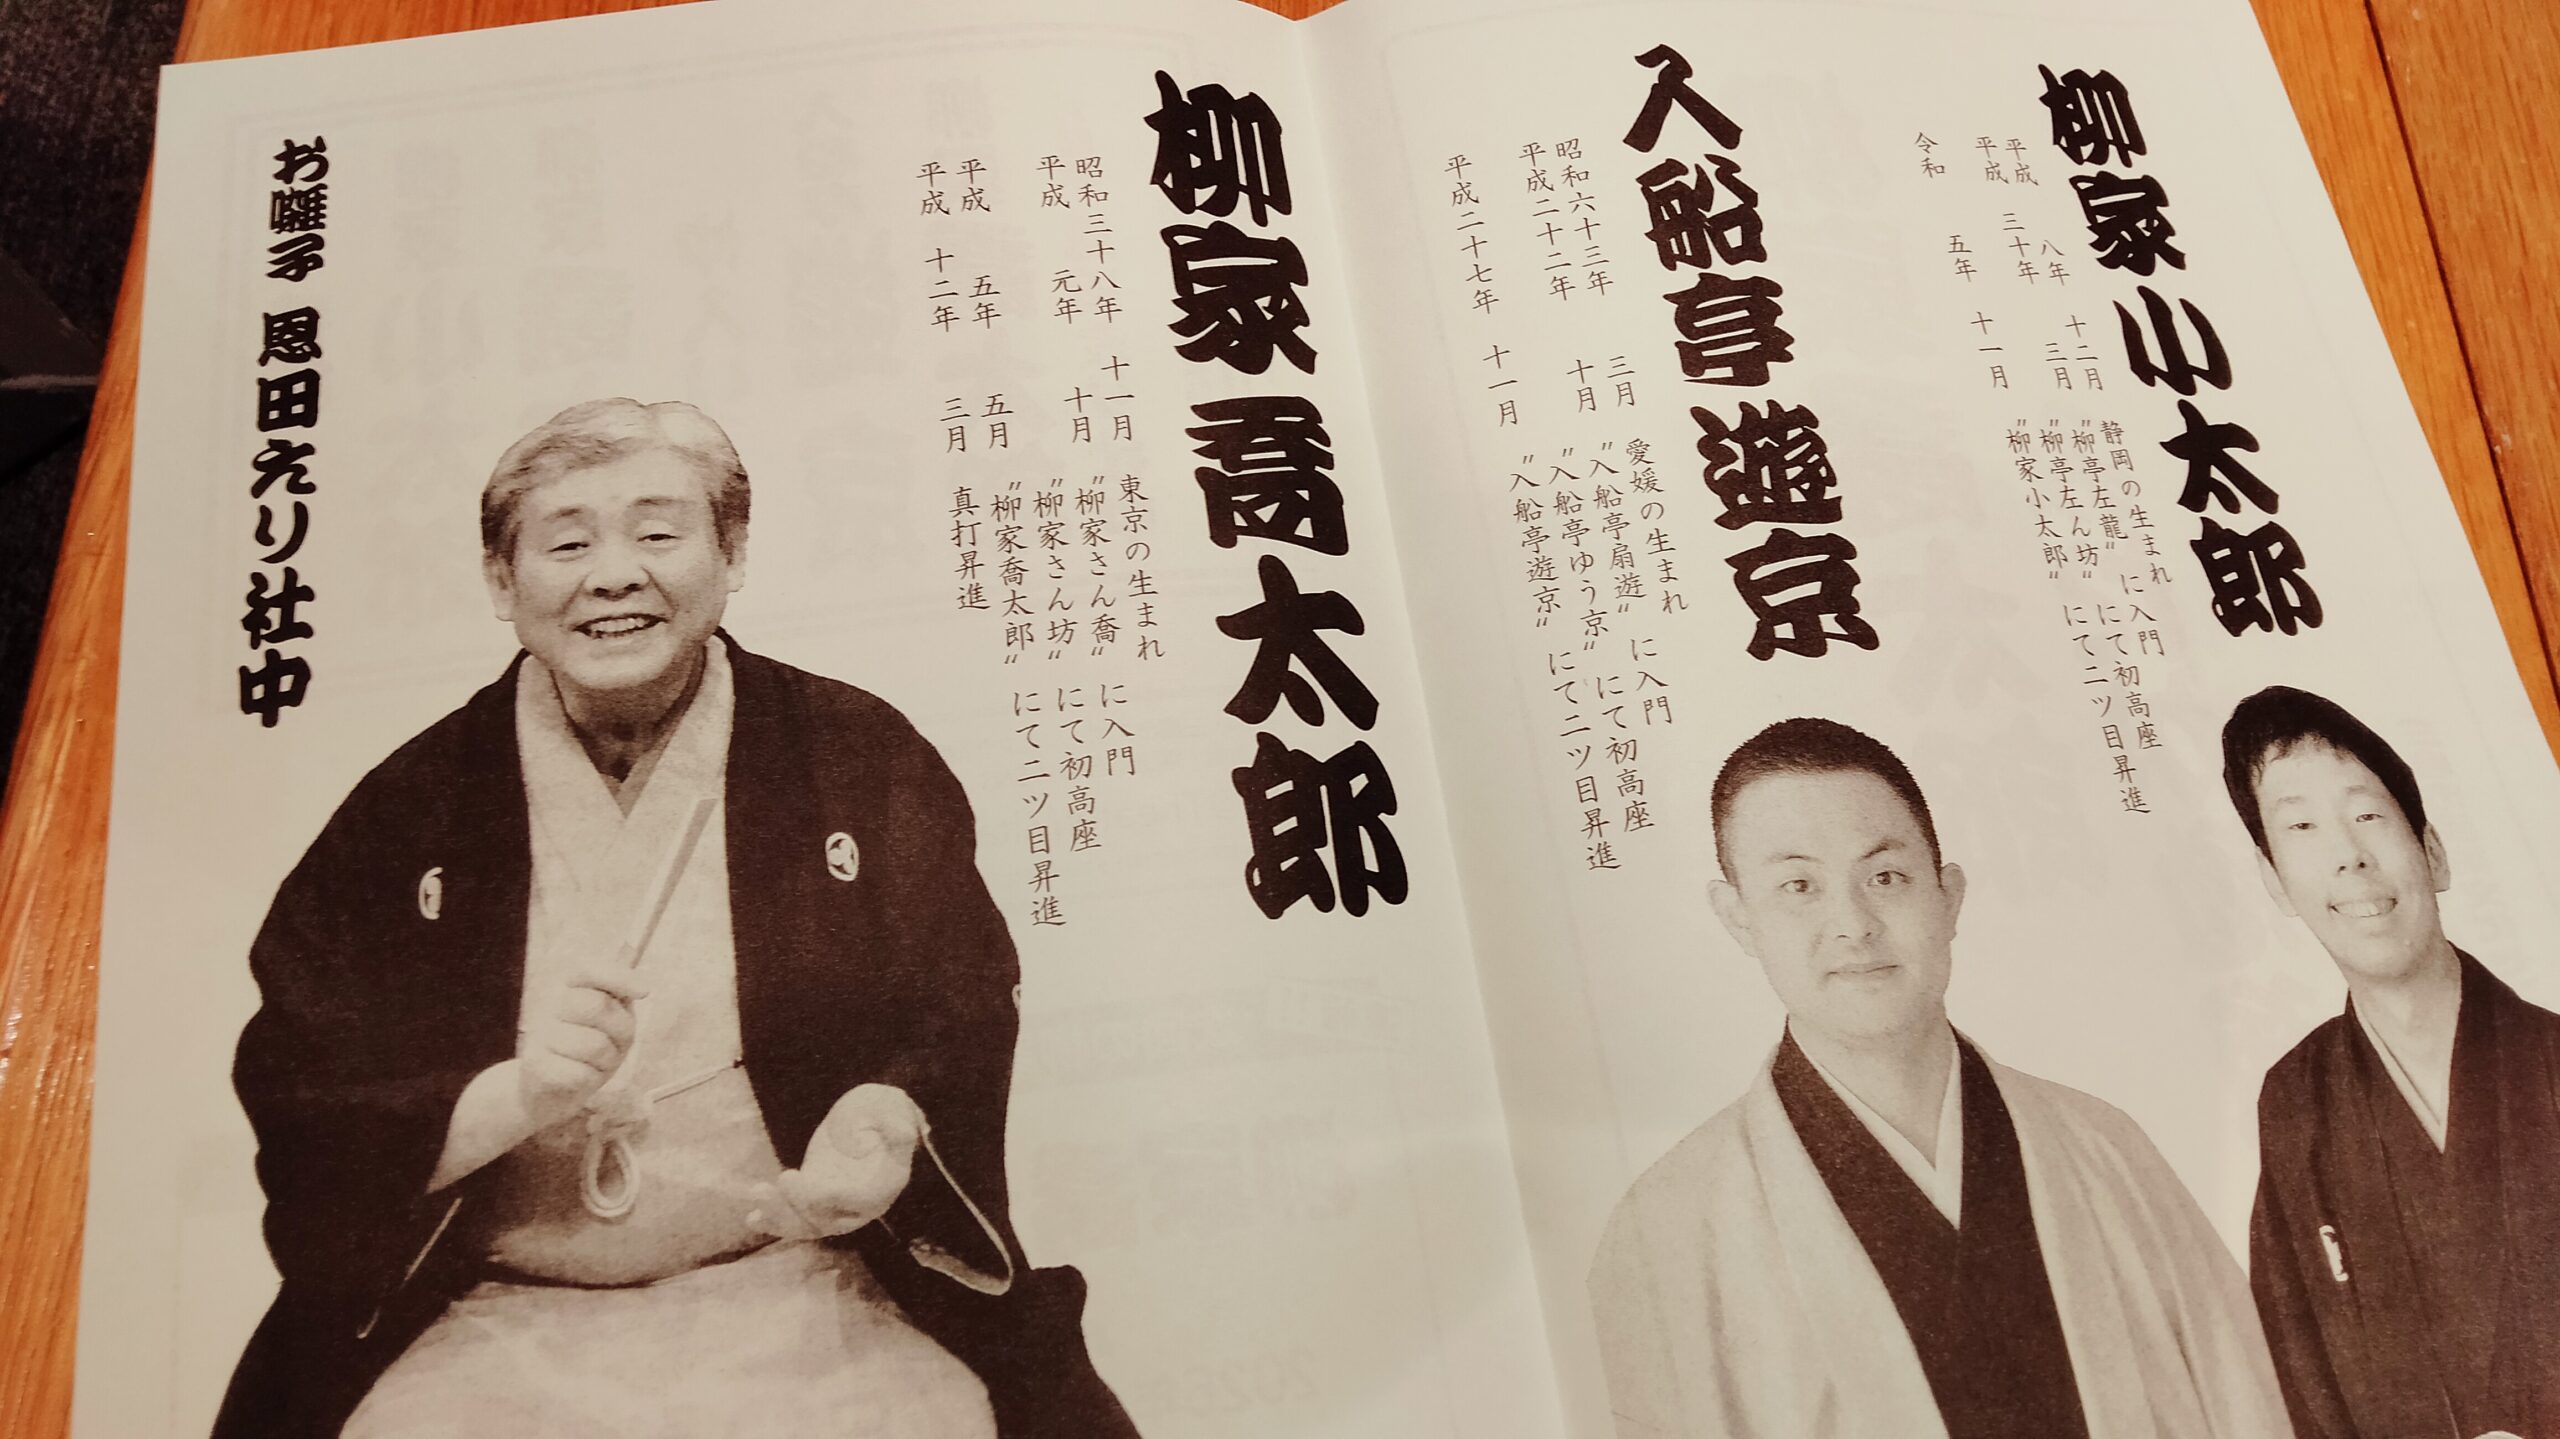 柳家小太郎
平成 八年 十二月 静岡の生まれ
平成 三十年 三月 〝柳亭左龍〟に入門
〝柳亭左ん坊〟にて初高座
令和 五年 十一月 〝柳家小太郎〟にて二ツ目昇進
入船亭遊京
昭和六十三年 三月 愛媛の生まれ
平成二十二年 十月 〝入船亭扇遊〟に入門
〝入船亭ゆう京〟にて初高座
平成二十七年 十一月 〝入船亭遊京〟にて二ツ目昇進
柳家喬太郎
昭和三十八年 十一月 東京の生まれ
平成 元年 十月 〝柳家さん喬〟に入門
〝柳家さん坊〟にて初高座
平成 五年 五月 〝柳家喬太郎〟にて二ツ目昇進
平成 十二年 三月 真打昇進
お囃子 恩田えり社中